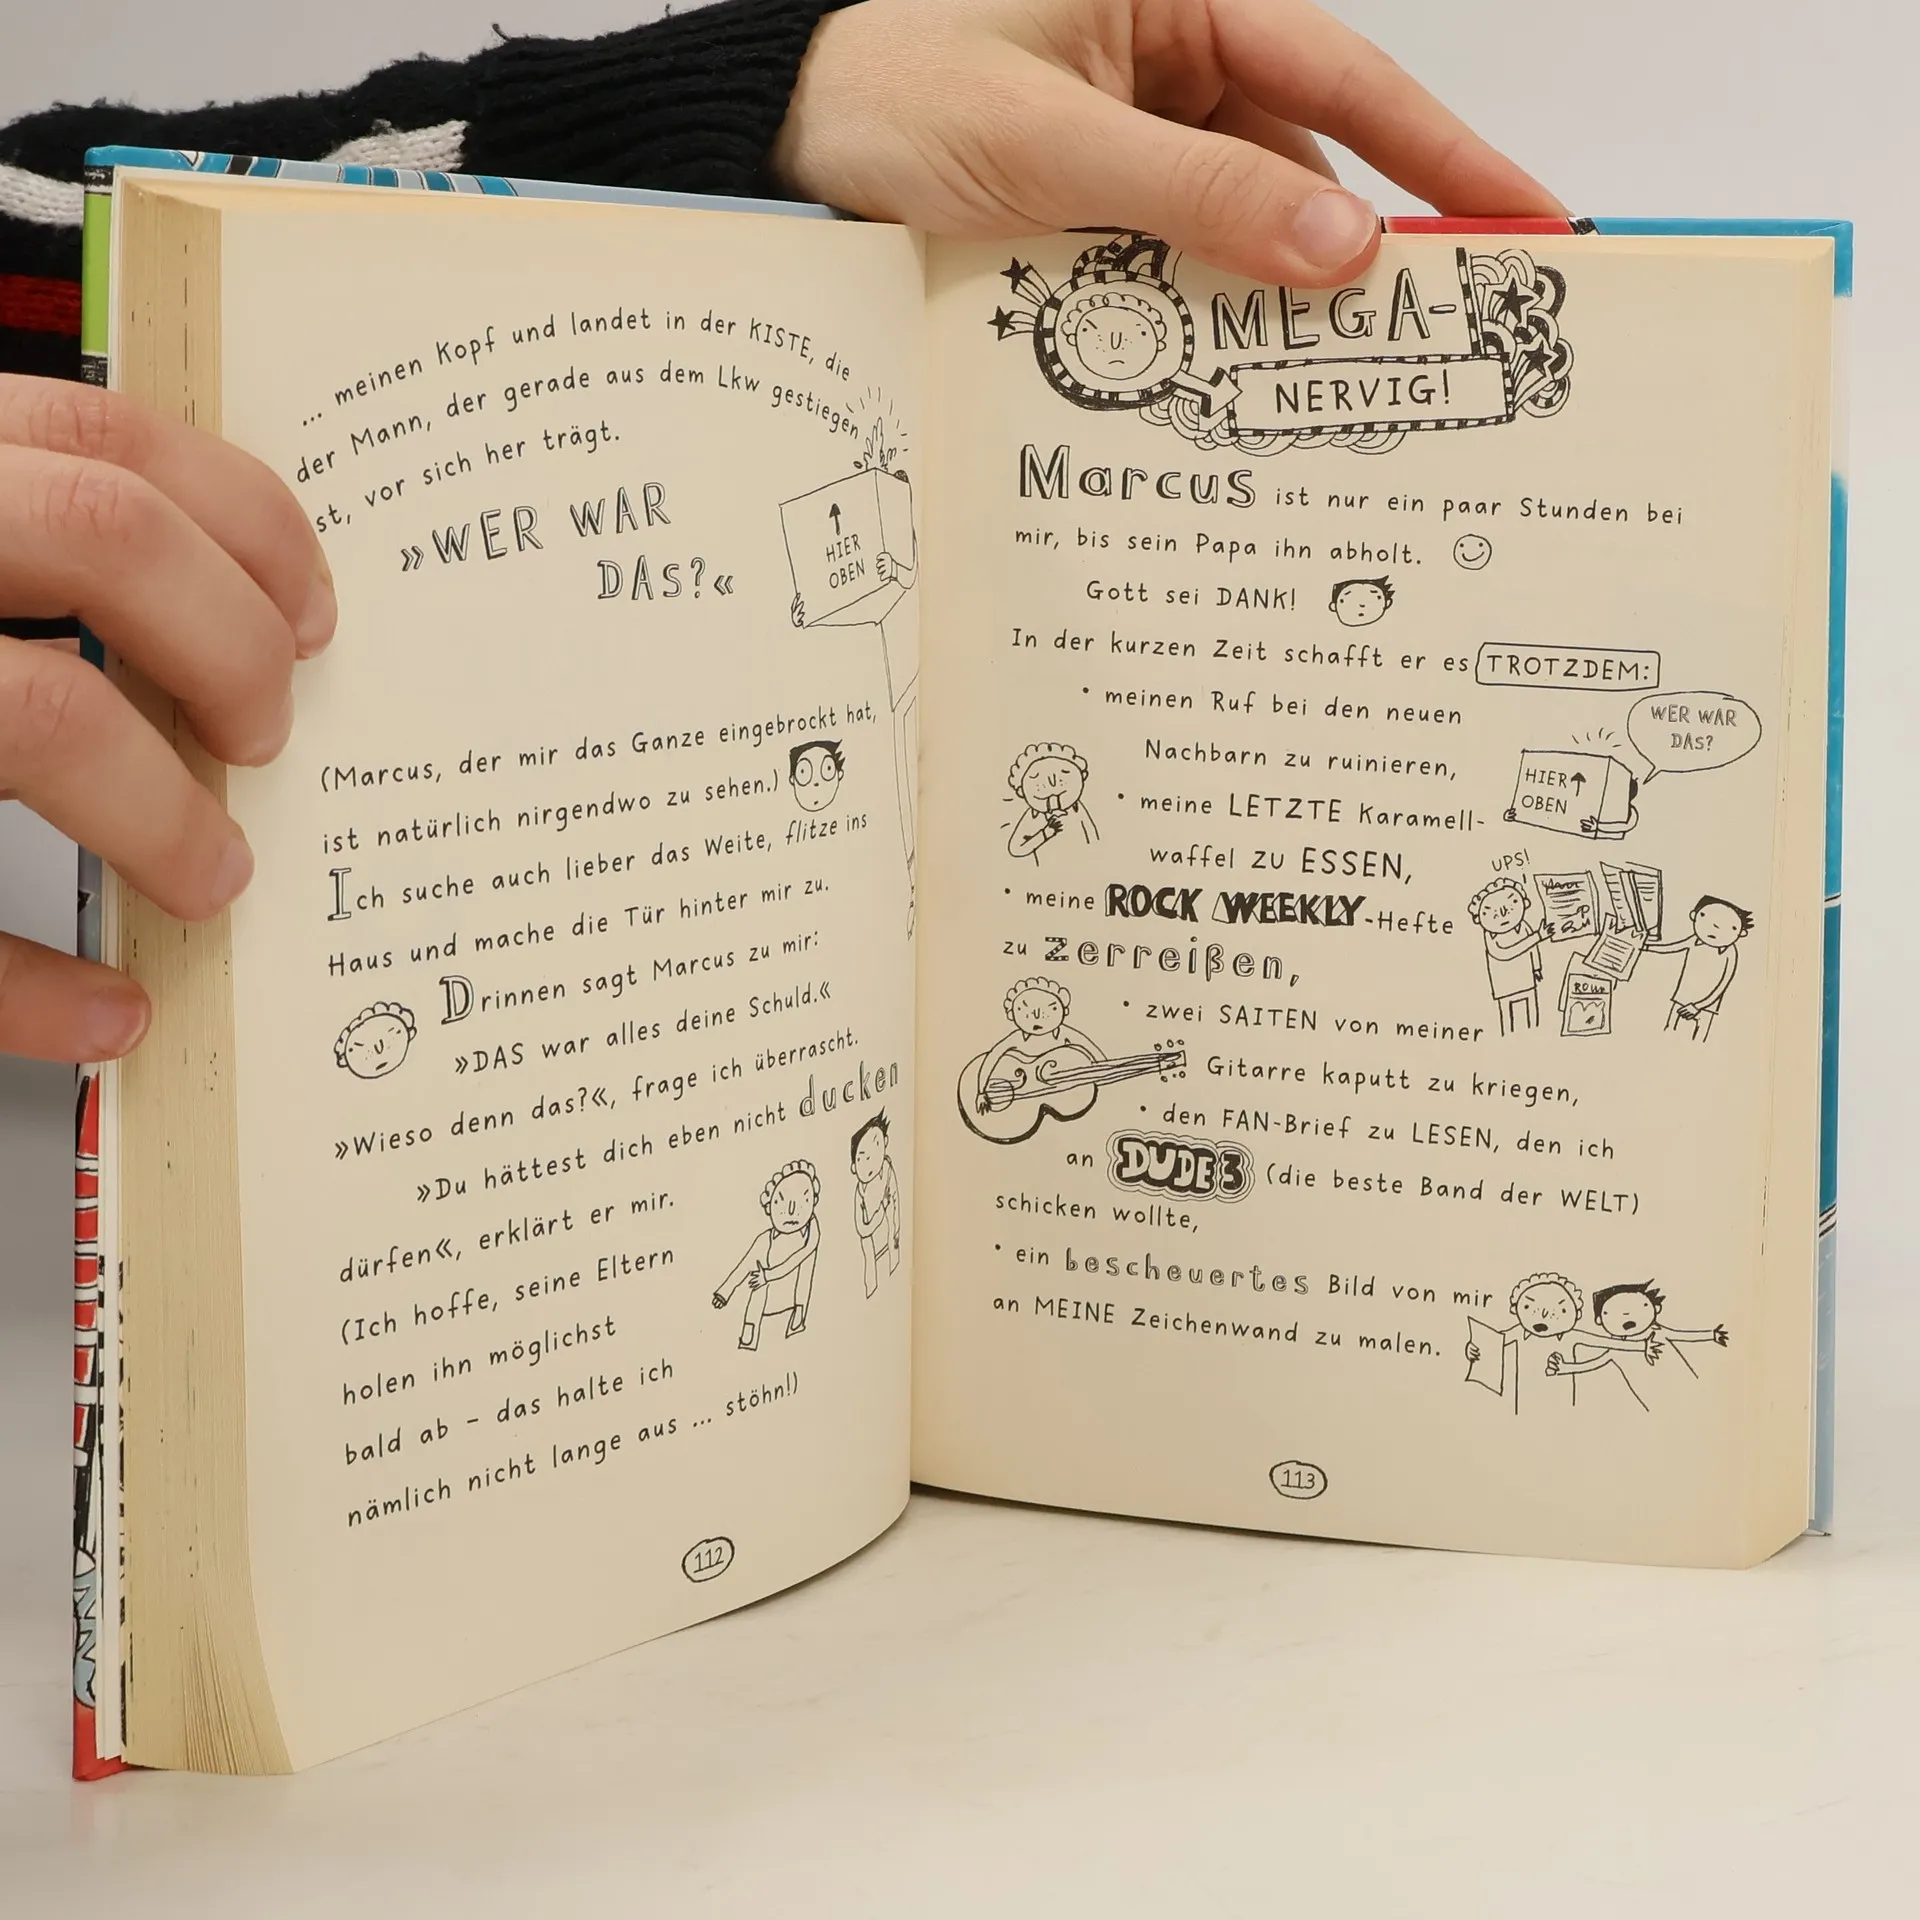 ... meinen Kopf und landet in der KISTE, die
der Mann, der gerade aus dem Lkw gestiegen
st, vor sich her trägt.
»WER WAR
DAS?«
HIER
OBEN
(Marcus, der mir das Ganze eingebrockt hat,
ist natürlich nirgendwo zu sehen.)
Ich suche auch lieber das Weite, flitze ins
Haus und mache die Tür hinter mir zu.
Drinnen sagt Marcus zu mir:
»DAS war alles deine Schuld.«
»Wieso denn das?«, frage ich überrascht.
»Du hättest dich eben nicht ducken
dürfen«, erklärt er mir.
(Ich hoffe, seine Eltern
holen ihn möglichst
bald ab – das halte ich
nämlich nicht lange aus ... stöhn!)
112
MEGA-
NERVIG!
Marcus ist nur ein paar Stunden bei
mir, bis sein Papa ihn abholt.
Gott sei DANK!
In der kurzen Zeit schafft er es TROTZDEM:
• meinen Ruf bei den neuen
Nachbarn zu ruinieren,
WER WAR
DAS?
HIER
OBEN
• meine LETZTE Karamell-
waffel zu ESSEN,
UPS!
• meine ROCK WEEKLY-Hefte
zu zerreißen,
• zwei SAITEN von meiner
Gitarre kaputt zu kriegen,
• den FAN-Brief zu LESEN, den ich
an DUDE 3 (die beste Band der WELT)
schicken wollte,
• ein bescheuertes Bild von mir
an MEINE Zeichenwand zu malen.
113